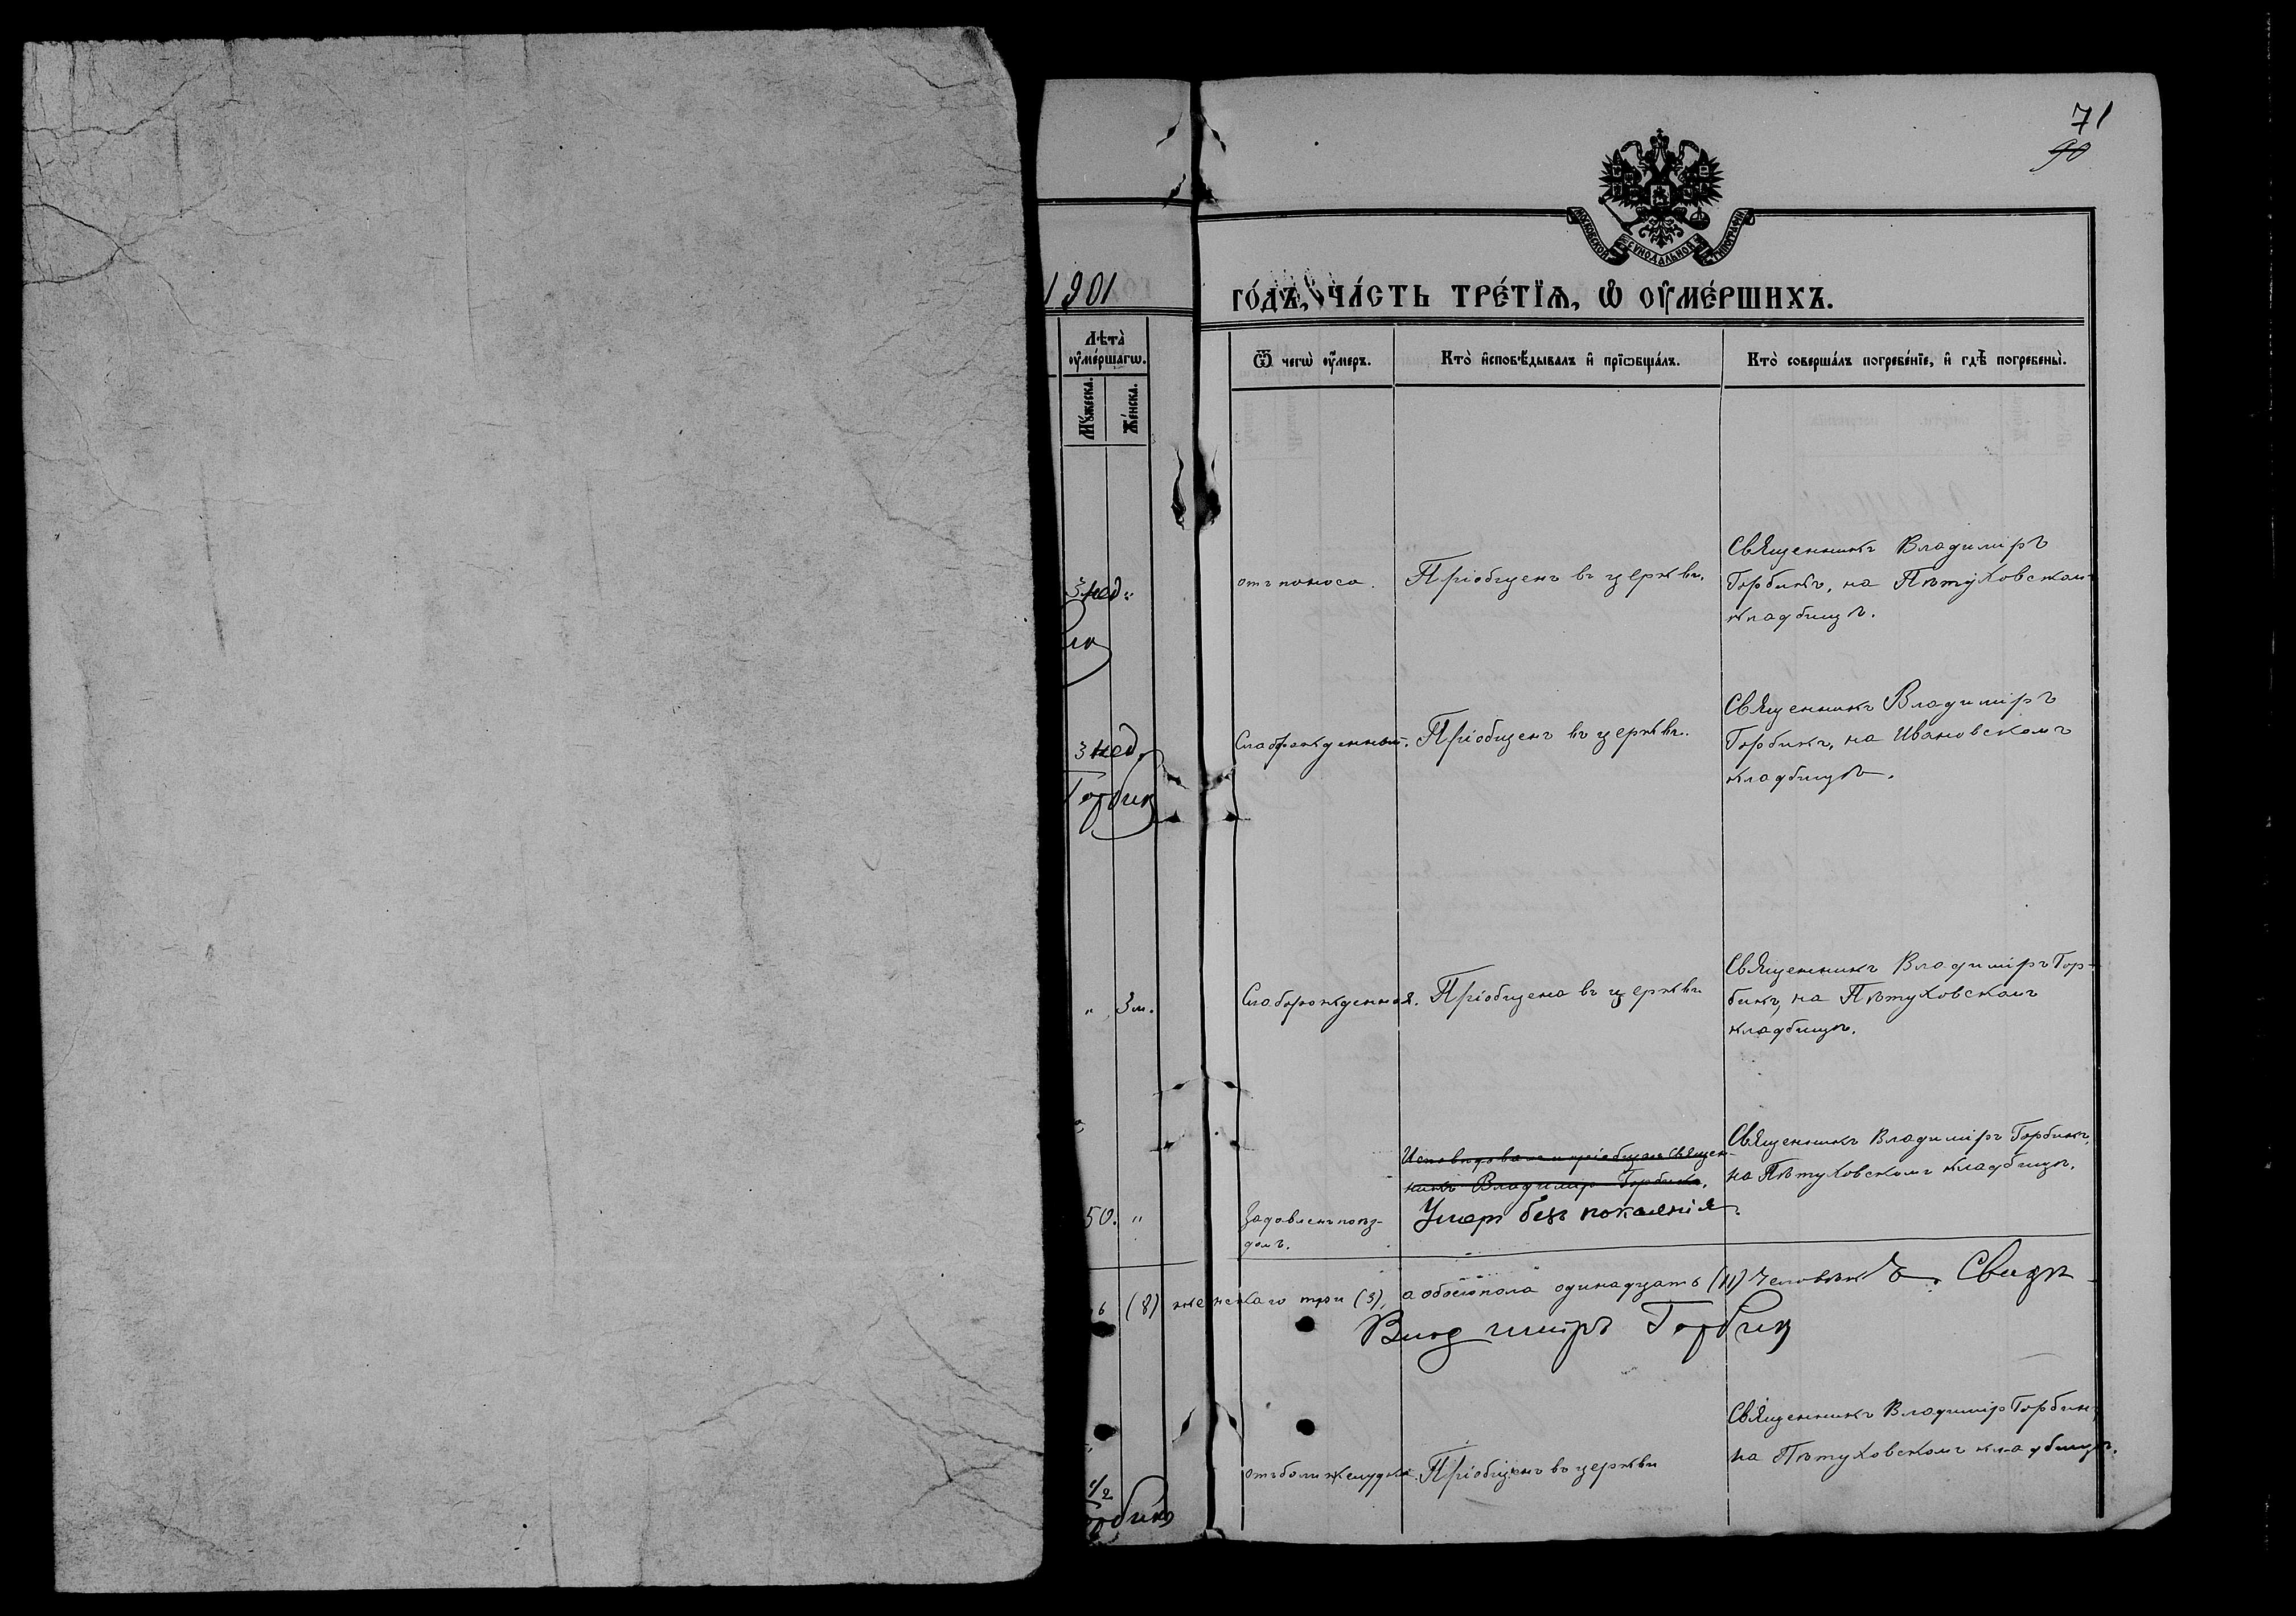 71
90
МОСКОВСКОЙ СУНОДАЛЬНОЙ ТИПОГРАФІИ
1901
го́дъ, ча́сть тре́тїѧ, ѡ҆ ᲂу҆ме́ршихъ.
Лѣта̀
ᲂу҆ме́ршагѡ.
Мꙋ́жеска.
Же́нска.
Ѿ чегѡ̀ ᲂу҆́меръ.
Кто̀ и҆сповѣ́дывалъ и҆ прїѡбща́лъ.
Кто̀ соверша́лъ погребе́нїе, и҆ гдѣ̀ погребены̀.
3 нед "
отъ поноса.
Пріобщенъ въ церкви.
Священникъ Владиміръ
Горбикъ, на Пѣтуховскомъ
кладбищѣ.
3 нед.
Горбик
Слаборожденный.
Пріобщенъ въ церкви.
Священникъ Владиміръ
Горбикъ, на Ивановскомъ
кладбищѣ.
" 3 м.
Слаборожденная.
Пріобщена въ церкви
Священникъ Владиміръ Гор-
бикъ, на Пѣтуховскомъ
кладбищѣ.
50. "
Задавленъ поѣз-
домъ.
Исповѣдовалъ и пріобщалъ Священ-
никъ Владиміръ Горбикъ.
Умеръ безъ покаянія.
Священникъ Владиміръ Горбикъ,
на Пѣтуховскомъ кладбищѣ.
(8) женскаго три (3), а обоего пола одинадцать (11) человѣкъ. Свящ
Владиміръ Горбик
1/2
отъ боли желудка.
Пріобщенъ въ церкви
Священникъ Владиміръ Горбикъ,
на Пѣтуховскомъ кладбищѣ.